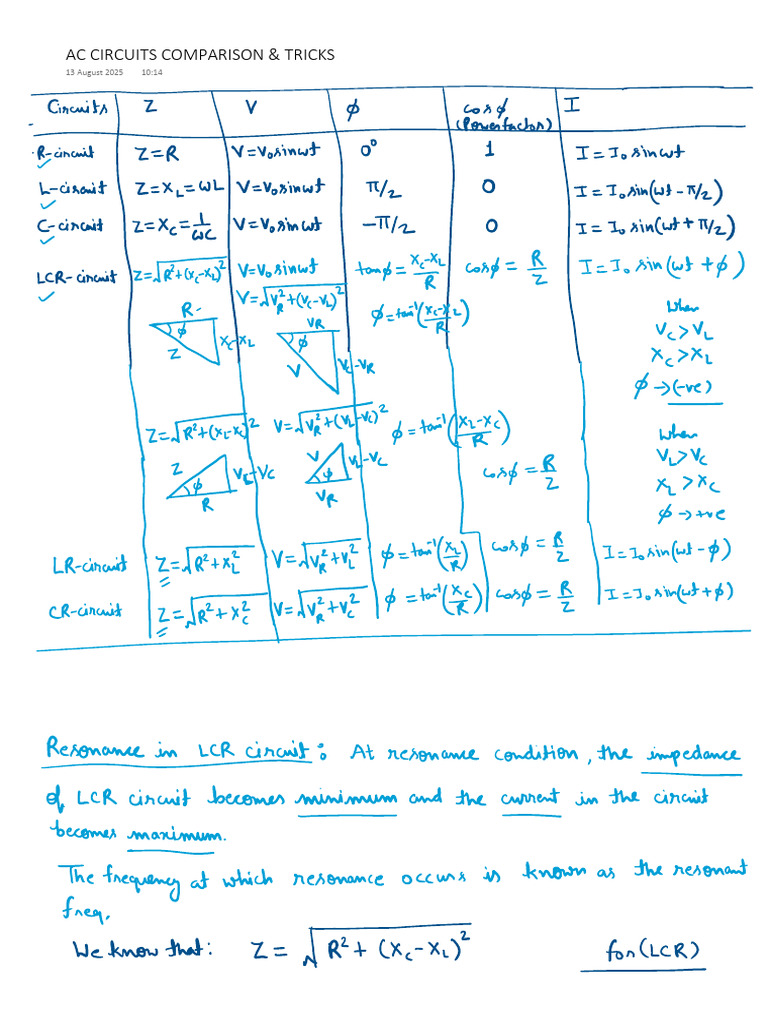 AC CIRCUITS COMPARISON & TRICKS
13 August 2025 10:14
Circuits Z V ϕ cosϕ (Powerfactor) I
R-circuit Z=R V=V₀sinωt 0° 1 I=I₀sinωt
L-circuit Z=X_L=ωL V=V₀sinωt π/2 0 I=I₀sin(ωt-π/2)
C-circuit Z=X_C=1/ωC V=V₀sinωt -π/2 0 I=I₀sin(ωt+π/2)
LCR-circuit Z=√(R²+(X_C-X_L)²) V=V₀sinωt tanϕ=(X_C-X_L)/R cosϕ=R/Z I=I₀sin(ωt+ϕ)
V=√(V_R²+(V_C-V_L)²) ϕ=tan⁻¹((X_C-X_L)/R) When
R ϕ X_C-X_L Z V_R ϕ V_C-V_R V V_C>V_L
X_C>X_L
ϕ→(-ve)
Z=√(R²+(X_L-X_C)²) V=√(V_R²+(V_L-V_C)²) ϕ=tan⁻¹((X_L-X_C)/R) When
Z ϕ R V_L-V_C V ϕ V_R V_L-V_C cosϕ=R/Z V_L>V_C
X_L>X_C
ϕ→+ve
LR-circuit Z=√(R²+X_L²) V=√(V_R²+V_L²) ϕ=tan⁻¹(X_L/R) cosϕ=R/Z I=I₀sin(ωt-ϕ)
CR-circuit Z=√(R²+X_C²) V=√(V_R²+V_C²) ϕ=tan⁻¹(X_C/R) cosϕ=R/Z I=I₀sin(ωt+ϕ)
Resonance in LCR circuit: At resonance condition, the impedance
of LCR circuit becomes minimum and the current in the circuit
becomes maximum.
The frequency at which resonance occurs is known as the resonant
freq.
We know that: Z=√(R²+(X_C-X_L)²) for(LCR)